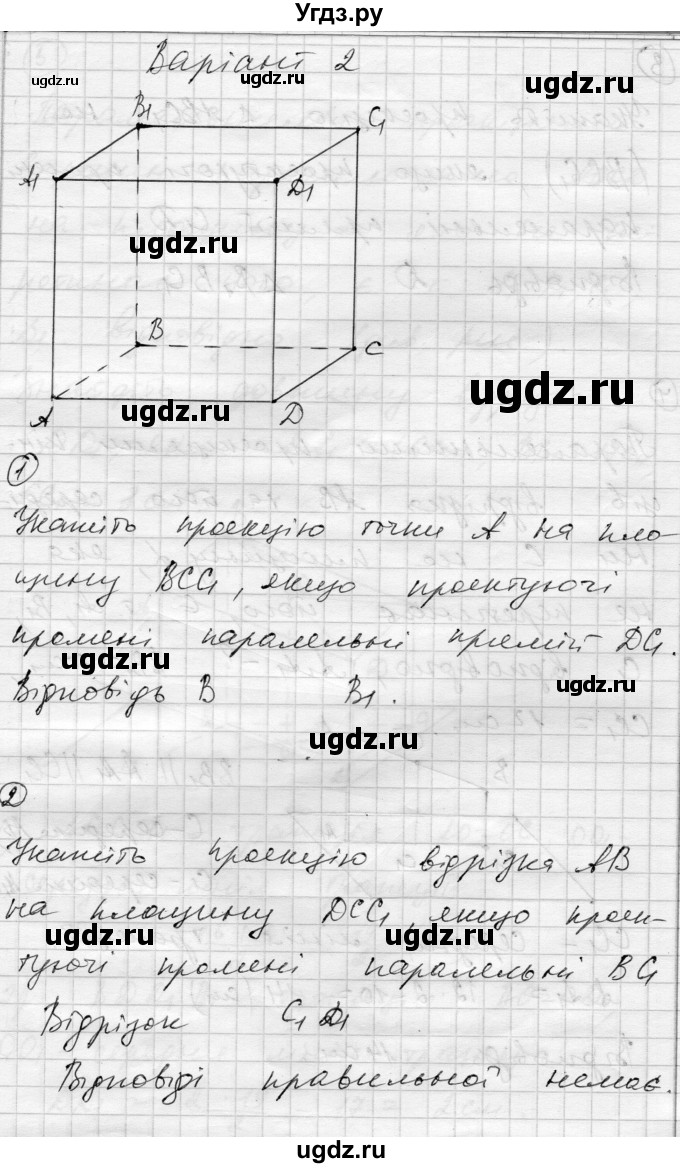 Угдз.ру
Варіант 2
ugdz.ru
ugdz.ru
ugdz.ru
B₁
C₁
A₁
D₁
ugdz.ru
B
C
ugdz.ru
ugdz.ru
A
D
1
Укажіть проекцію точки A на пло-
ugdz.ru
ugdz.ru
щину BCC₁, якщо проектуючі
промені паралельні прямій DC₁.
ugdz.ru
ugdz.ru
Відповідь B B₁.
ugdz.ru
2
Укажіть проекцію відрізка AB
на площину DCC₁, якщо проек-
ugdz.ru
ugdz.ru
туючі промені паралельні BC₁
Відрізок C₁D₁
Відповіді правильної немає.
ugdz.ru